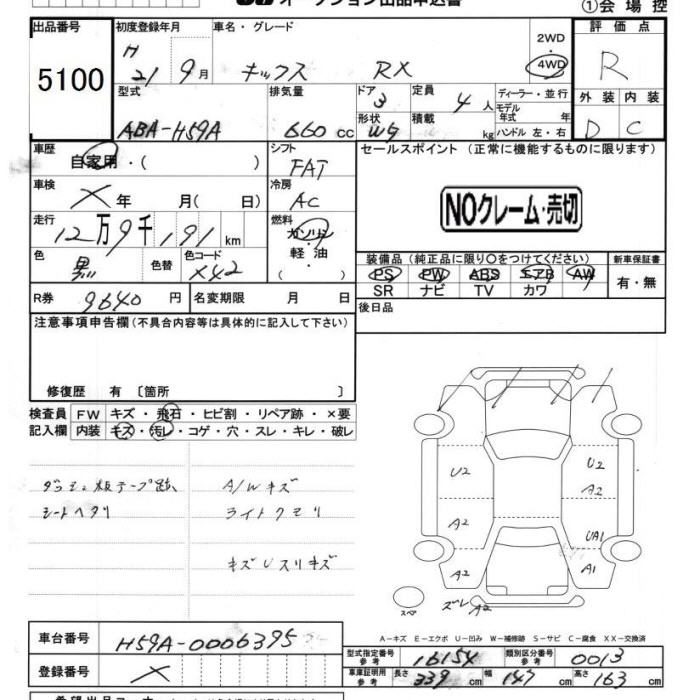 オークション出品申込書
①会場控
出品番号 初度登録年月 車名・グレード 2WD・4WD 評価点
5100 H 21 9月 キックス RX R
型式 排気量 ドア 3 定員 4 人 ディーラー・並行 外装 内装
モデル年式 年
ABA-H59A 660 cc 形状 Wg 積載 kg ハンドル 左・右 D C
車歴 自家用・( ) シフト FAT セールスポイント (正常に機能するものに限ります)
車検 × 年 月( 日) 冷房 AC NOクレーム・売切
走行 12万9千191 km 燃料 ガソリン
軽油
( ・ )
色 黒 色替 色コード X42 装備品(純正品に限り〇をつけてください) 新車保証書
PS PW ABS エアB AW 有・無
SR ナビ TV カワ
R券 9640 円 名変期限 月 日 後日品
注意事項申告欄(不具合内容等は具体的に記入して下さい)
修復歴 有 〔箇所 〕
検査員 FW キズ・飛石・ヒビ割・リペア跡・×要
記入欄 内装 キズ・汚レ・コゲ・穴・スレ・キレ・破レ
テープ跡 A/Wキズ
シートヘタリ ライトクモリ
キズUスリキズ
U2 U2
A2
A2 UA1
A2 A1
スペア ズレ A2
A−キズ E−エクボ U−凹み W−補修跡 S−サビ C−腐食 XX−交換済
車台番号 H59A-0006395
登録番号 ×
型式指定番号 参考 16154 類別区分番号 参考 0013
車庫証明用 参考 長さ 339 cm 幅 147 cm 高さ 163 cm